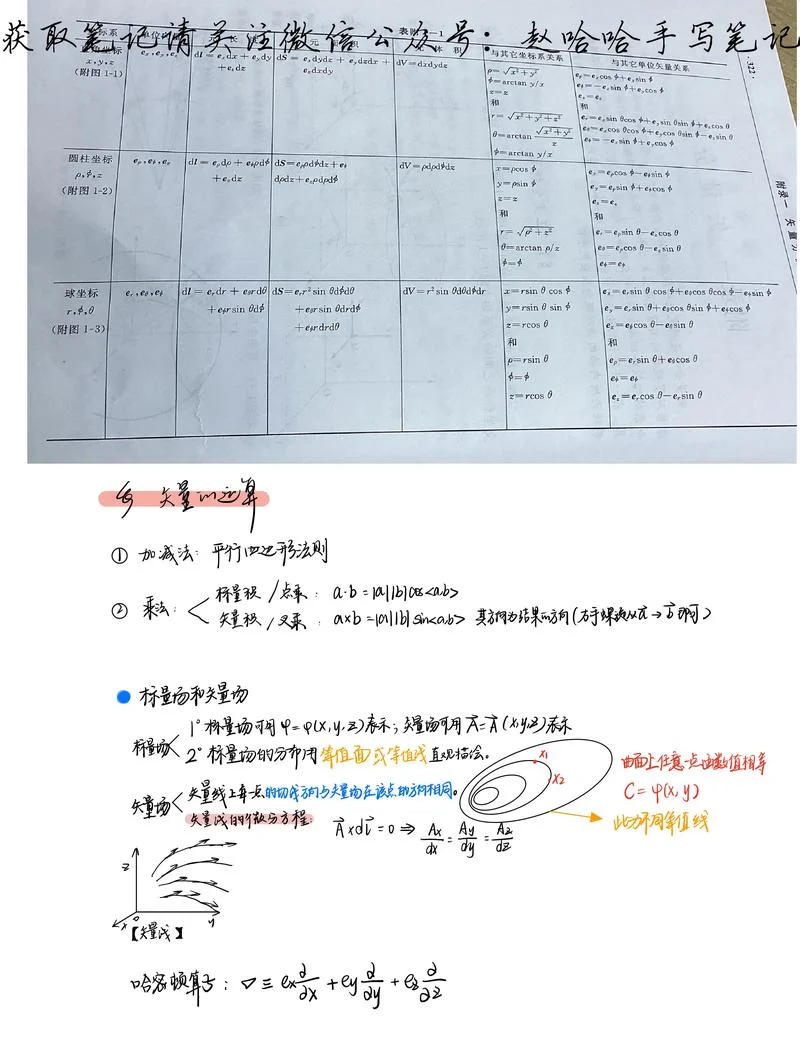 获取笔记请关注微信公众号：赵哈哈手写笔记
表附1-1
·322·
与其它坐标系关系
与其它单位矢量关系
x,y,z
(附图 1-1)
dl=e_x dx+e_y dy
+e_z dz
dS=e_x dydz+e_y dzdx+
e_z dxdy
dV=dxdydz
ρ=√(x²+y²)
φ=arctan y/x
z=z
和
r=√(x²+y²+z²)
θ=arctan √(x²+y²)/z
φ=arctan y/x
e_ρ=e_x cos φ+e_y sin φ
e_φ=-e_x sin φ+e_y cos φ
e_z=e_z
和
e_r=e_x sin θcos φ+e_y sin θsin φ+e_z cos θ
e_θ=e_x cos θcos φ+e_y cos θsin φ-e_z sin θ
e_φ=-e_x sin φ+e_y cos φ
圆柱坐标
ρ,φ,z
(附图 1-2)
e_ρ,e_φ,e_z
dl=e_ρ dρ+e_φ ρdφ
+e_z dz
dS=e_ρ ρdφdz+e_φ
dρdz+e_z ρdρdφ
dV=ρdρdφdz
x=ρcos φ
y=ρsin φ
z=z
和
r=√(ρ²+z²)
θ=arctan ρ/z
φ=φ
e_x=e_ρ cos φ-e_φ sin φ
e_y=e_ρ sin φ+e_φ cos φ
e_z=e_z
和
e_r=e_ρ sin θ-e_z cos θ
e_θ=e_ρ cos θ-e_z sin θ
e_φ=e_φ
附录一 矢量
球坐标
r,φ,θ
(附图 1-3)
e_r,e_θ,e_φ
dl=e_r dr+e_θ rdθ
+e_φ rsin θdφ
dS=e_r r²sin θdφdθ
+e_θ rsin θdrdφ
+e_φ rdrdθ
dV=r²sin θdθdφdr
x=rsin θ cos φ
y=rsin θ sin φ
z=rcos θ
和
ρ=rsin θ
φ=φ
z=rcos θ
e_x=e_r sin θ cos φ+e_θ cos θcos φ-e_φ sin φ
e_y=e_r sin θ+e_θ cos θsin φ+e_φ cos φ
e_z=e_θ cos θ-e_θ sin θ
和
e_ρ=e_r sin θ+e_θ cos θ
e_φ=e_φ
e_z=e_r cos θ-e_r sin θ
矢量的运算
① 加减法：平行四边形法则
② 乘法：
标量积/点乘：a·b=|a||b|cos<a,b>
矢量积/叉乘：a×b=|a||b|sin<a,b> 其方向为结果的方向(右手螺旋从a→b即可)
标量场和矢量场
标量场
1° 标量场可用φ=φ(x,y,z)表示；矢量场可用A=A(x,y,z)表示
2° 标量场的分布用等值面或等值线直观描绘。
x1
x2
曲面上任意一点函数值相等
C=φ(x,y)
此为不同等值线
矢量场
矢量线上每一点的切线方向与矢量场在该点的方向相同。
矢量线的微分方程：
A×dl=0 ⇒ Ax/dx=Ay/dy=Az/dz
z
x
o
y
【矢量线】
哈密顿算子：▽≡ex ∂/∂x+ey ∂/∂y+ez ∂/∂z